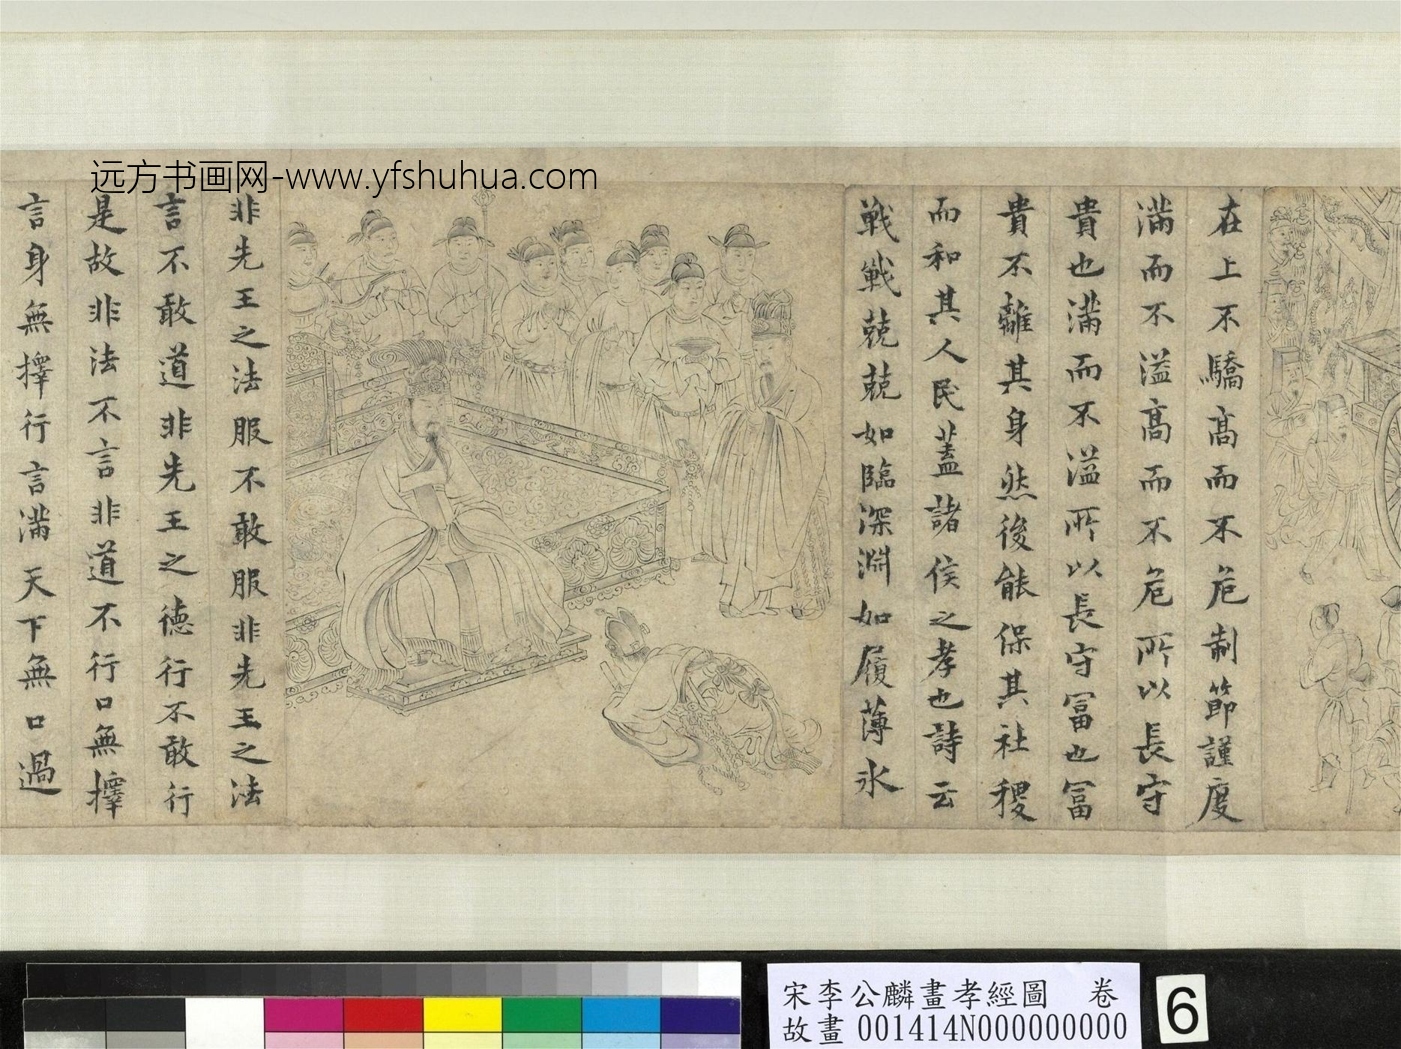 远方书画网-www.yfshuhua.com
在上不驕高而不危制節謹度
滿而不溢高而不危所以長守
貴也滿而不溢所以長守冨也冨
貴不離其身然後能保其社稷
而和其人民蓋諸侯之孝也詩云
戰戰兢兢如臨深淵如履薄氷
非先王之法服不敢服非先王之法
言不敢道非先王之德行不敢行
是故非法不言非道不行口無擇
言身無擇行言滿天下無口過
宋李公麟畫孝經圖 卷
故畫 001414N000000000
6